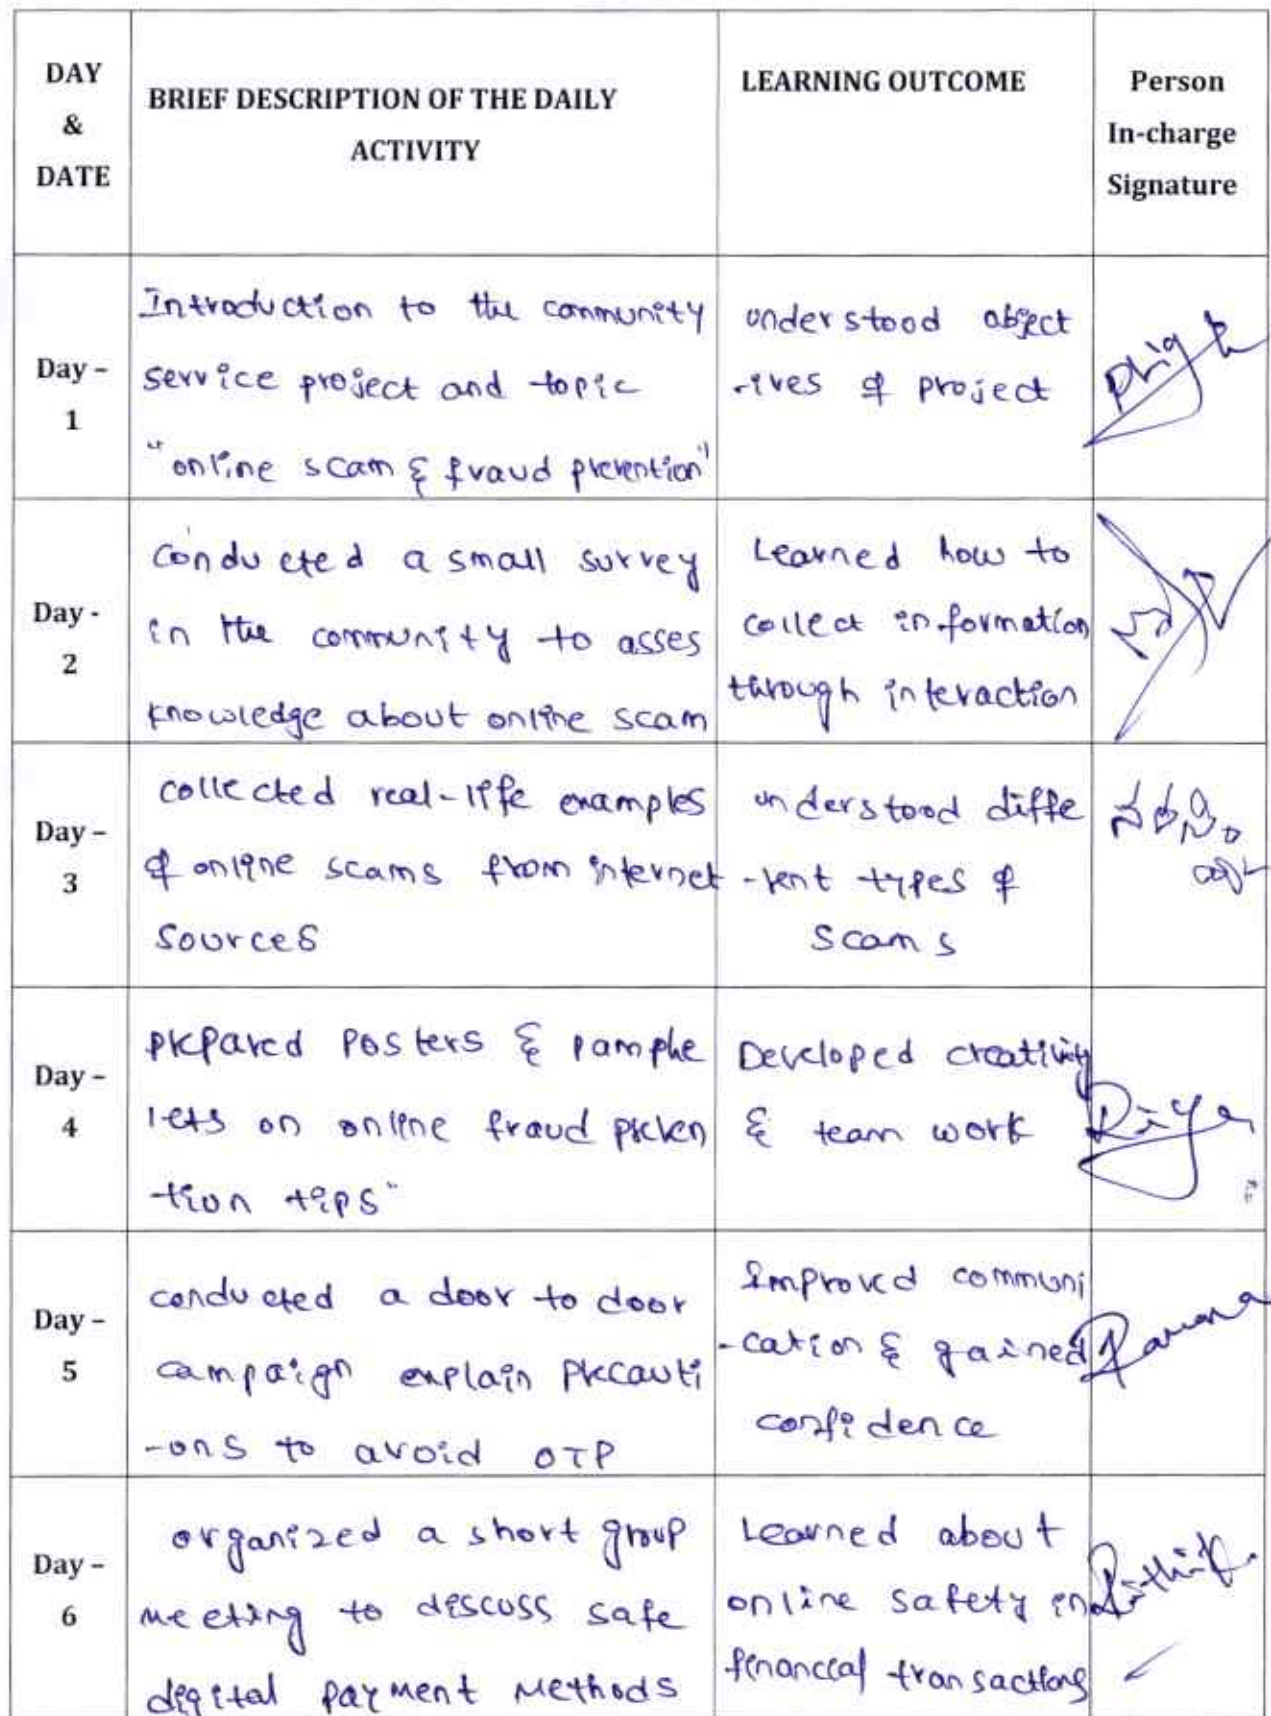 DAY & DATE
BRIEF DESCRIPTION OF THE DAILY ACTIVITY
LEARNING OUTCOME
Person In-charge Signature
Day – 1
Introduction to the community
service project and topic
"online scam & fraud prevention"
understood object
-ives of project
Day - 2
conducted a small survey
in the community to asses
knowledge about online scam
Learned how to
collect information
through interaction
Day – 3
collected real-life examples
of online scams from internet
sources
understood diffe
-rent types of
scams
Day – 4
prepared posters & pamphe
lets on online fraud preven
tion tips"
Developed creativity
& team work
Riya
Day – 5
conducted a door to door
campaign explain precauti
-ons to avoid OTP
Improved communi
-cation & gained
confidence
Ramana
Day – 6
organized a short group
meeting to discuss safe
digital payment methods
Learned about
online safety in
financial transactions